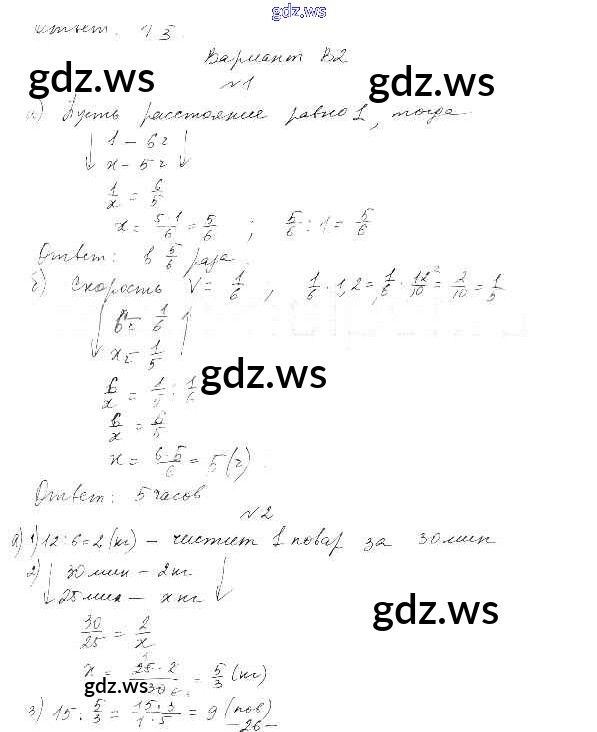 gdz.ws
Ответ. 15.
Вариант В2
gdz.ws gdz.ws
№1
а) Пусть расстояние равно 1, тогда
↓ 1 – 6 г ↓
↓ x – 5 г ↓
1/x = 6/5
x = 5·1/6 = 5/6 ; 5/6 : 1 = 5/6
Ответ: в 5/6 раза.
б) Скорость V = 1/6 , 1/6 · 1,2 = 1/6 · 12/10 = 2/10 = 1/5
6 – 1/6
x – 1/5
gdz.ws
6/x = 1/5 : 1/6
6/x = 6/5
x = 6·5/6 = 5 (г).
Ответ: 5 часов
№2
а) 1) 12 : 6 = 2 (кг) – чистит 1 повар за 30 мин
2) ↓ 30 мин – 2 кг ↓
↓ 25 мин – x кг ↓
gdz.ws
30/25 = 2/x
x = 25·2/30 = 5/3 (кг)
gdz.ws
3) 15 : 5/3 = 15·3/1·5 = 9 (пов)
–26–